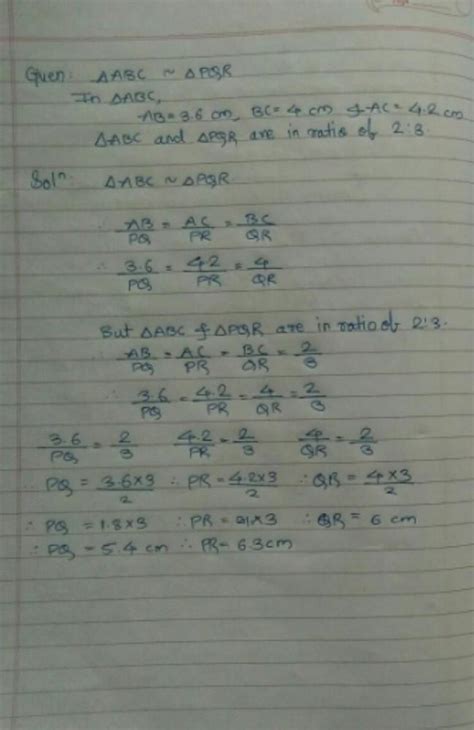 Given: △ABC ~ △PQR
In △ABC,
AB = 3.6 cm, BC = 4 cm & AC = 4.2 cm
△ABC and △PQR are in ratio of 2:3.
Solⁿ. △ABC ~ △PQR
∴ AB/PQ = AC/PR = BC/QR
∴ 3.6/PQ = 4.2/PR = 4/QR
But △ABC & △PQR are in ratio of 2:3.
AB/PQ = AC/PR = BC/QR = 2/3
∴ 3.6/PQ = 4.2/PR = 4/QR = 2/3
3.6/PQ = 2/3 4.2/PR = 2/3 4/QR = 2/3
∴ PQ = 3.6×3/2 ∴ PR = 4.2×3/2 ∴ QR = 4×3/2
∴ PQ = 1.8×3 ∴ PR = 21×3 ∴ QR = 6 cm
∴ PQ = 5.4 cm ∴ PR = 6.3cm